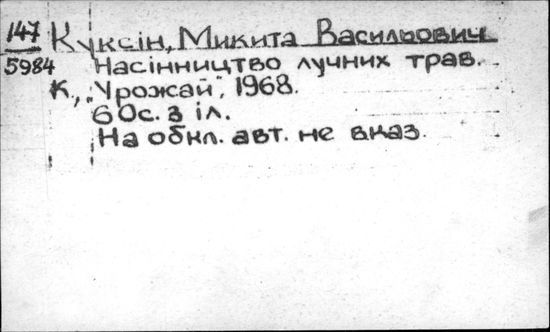 147
5984
Куксін, Микита Васильович
Насінництво лучних трав.
К., „Урожай", 1968.
60с. з іл.
На обкл. авт. не вказ.